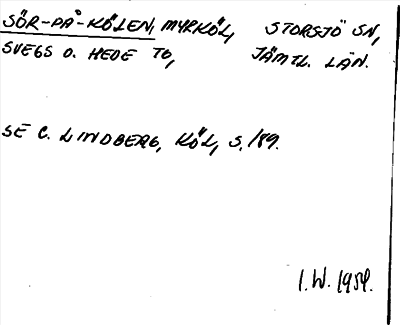 SÖR-PÅ-KÖLEN, MYRKÖL, STORSJÖ SN,
SVEGS O. HEDE TG, JÄMTL. LÄN.
SE C. LINDBERG, KÖL, S. 189.
I.W. 1954.